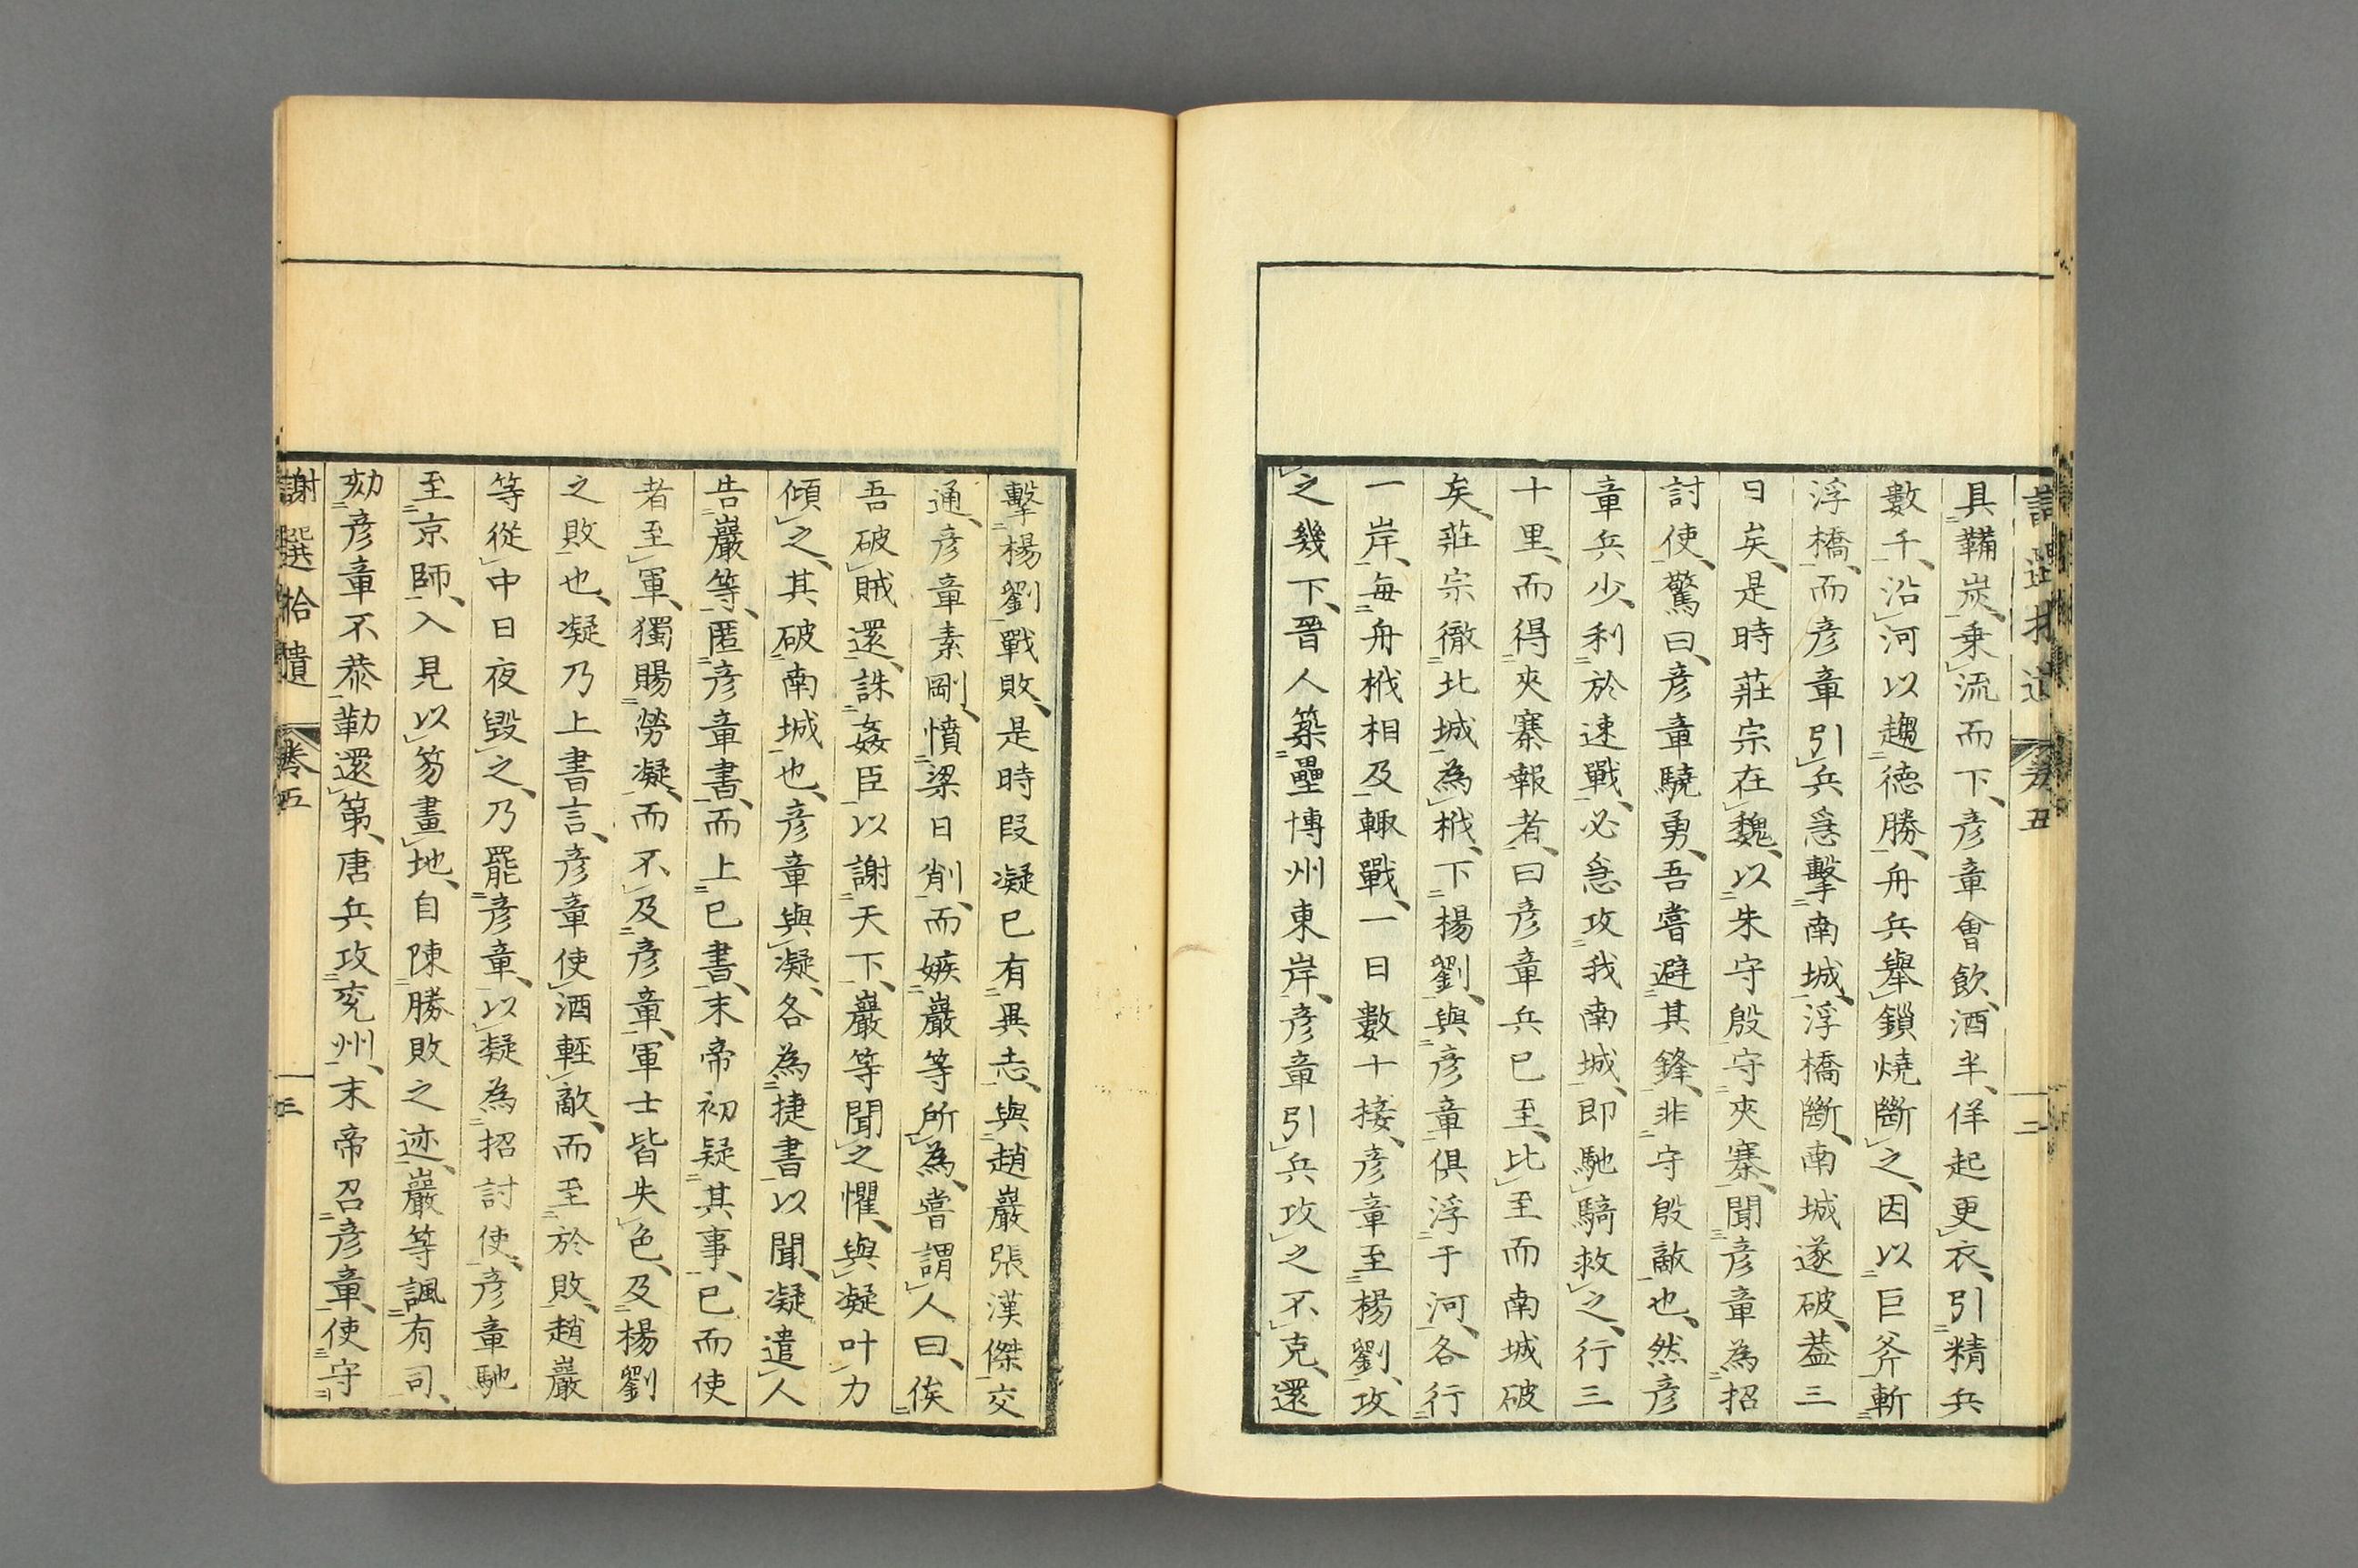 具鞴炭、乗流而下、彦章會飲、酒半、佯起更衣、引精兵
數千、沿河以趨德勝、舟兵舉鎻燒斷之、因以巨斧斬
浮橋、而彦章引兵急擊南城、浮橋斷、南城遂破、葢三
日矣、是時莊宗在魏、以朱守殷守夾寨、聞彦章為招
討使、驚曰、彦章驍勇、吾嘗避其鋒、非守殷敵也、然彦
章兵少、利於速戰、必急攻我南城、即馳騎救之、行三
十里、而得夾寨報者、曰彦章兵已至、比至而南城破
矣、莊宗徹北城為栰、下楊劉、與彦章俱浮于河、各行
一岸、每舟栰相及輙戰、一日數十接、彦章至楊劉、攻
之幾下、晉人築壘博州東岸、彦章引兵攻之不克、還
擊楊劉戰敗、是時段凝已有異志、與趙巖張漢傑交
通、彦章素剛、憤梁日削、而嫉巖等所為、嘗謂人曰、俟
吾破賊還、誅姦臣以謝天下、巖等聞之懼、與凝叶力
傾之、其破南城也、彦章與凝、各為捷書以聞、凝遣人
告巖等、匿彦章書、而上已書、末帝初疑其事、已而使
者至軍、獨賜勞凝、而不及彦章、軍士皆失色、及楊劉
之敗也、凝乃上書言、彦章使酒輕敵、而至於敗、趙巖
等從中日夜毀之、乃罷彦章、以凝為招討使、彦章馳
至京師、入見以笏畫地、自陳勝敗之迹、巖等諷有司、
劾彦章不恭、勒還第、唐兵攻兗州、末帝召彦章、使守
謝選拾遺 卷五 三